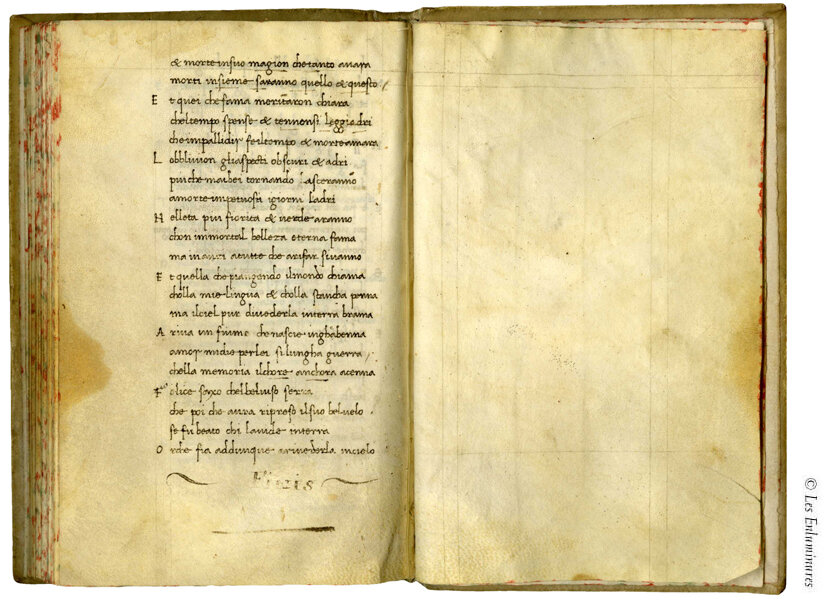 & morte in suo magion che tanto avara
morti insieme saranno quello & questo
E t quei che fama meritaron chiara
chel tempo spense & tennensi leggiadri
che impallidir fe il tempo & morte amara
L obblivion gli aspecti obscuri & adri
piu che mai bei tornando lasceranno
a morte impetuosi i giorni ladri
N elleta piu fiorita & verde aranno
chon immortal belleza eterna fama
ma inanzi a tutte che a rifar si vanno
E t quella che piangendo il mondo chiama
cholla mie lingua & cholla stancha penna
ma il ciel pur di vederla in terra brama
A riva un fiume che nascie in ghabenna
amor mi die per lei si lungha guerra
chella memoria il chore anchora acenna
F elice saxo chel bel viso serra
che poi che aura ripreso il suo bel velo
se fu beato chi la vide in terra
O r che fia addunque a rivederla in cielo
Finis
© Les Enluminures